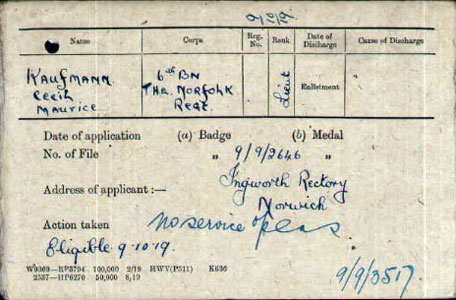 9/10/19
Name Corps Reg. No. Rank Date of Discharge Cause of Discharge
KAUFMANN 6th BN Lieut Enlistment
Cecil THE NORFOLK
MAURICE REGT.
Date of application (a) Badge (b) Medal
No. of File " 9/9/2646 "
Address of applicant :— Ingworth Rectory
Norwich
Action taken No service o/seas
Eligible 9.10.19.
W9369—RP3704 100,000 2/19 HWV(P511) K636
2537—HP6270 50,000 8/19
9/9/3517.